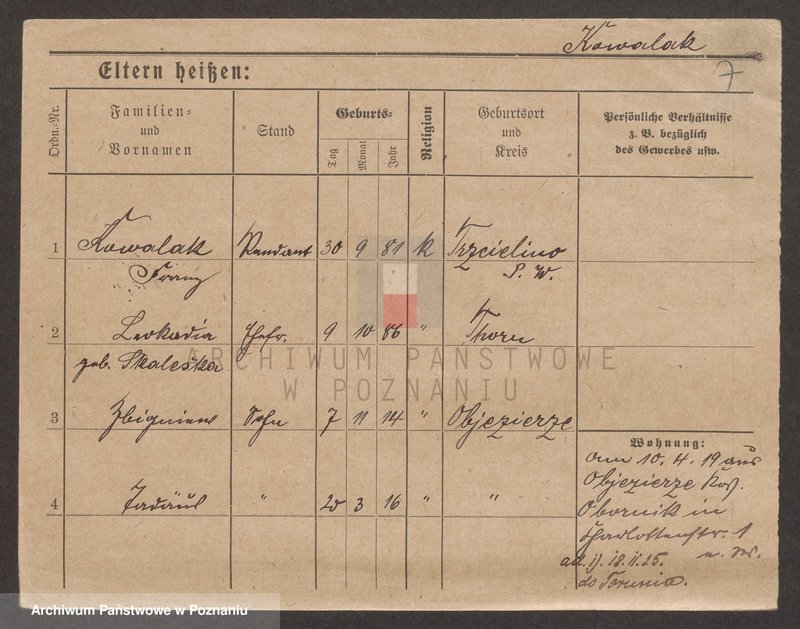 Kowalak
7
Eltern heißen:
Ordn.-Nr.
Familien- und Vornamen
Stand
Geburts-
Tag
Monat
Jahr
Religion
Geburtsort und Kreis
Persönliche Verhältnisse
z. B. bezüglich
des Gewerbes usw.
1 Kowalak Rendant 30 9 81 k Trzcielino
Franz P. W.
2 Leokadia Ehefr. 9 10 86 " Thorn
geb. Skaleska
3 Zbigniew Sohn 7 11 14 " Objezierze
4 Tadäus " 20 3 16 " "
Wohnung:
am 10. 4. 19 aus
Objezierze
Obornik in
Charlottenstr. 1
18.11.25.
do Torunia.
ARCHIWUM PAŃSTWOWE
W POZNANIU
Archiwum Państwowe w Poznaniu